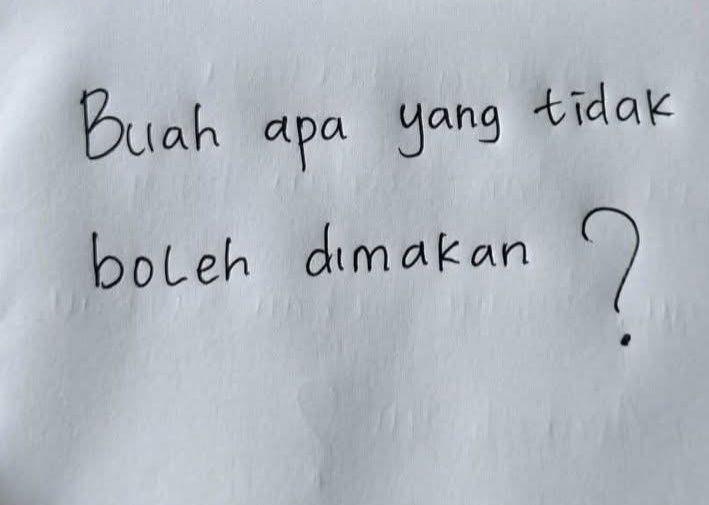 Buah apa yang tidak
boleh dimakan ?